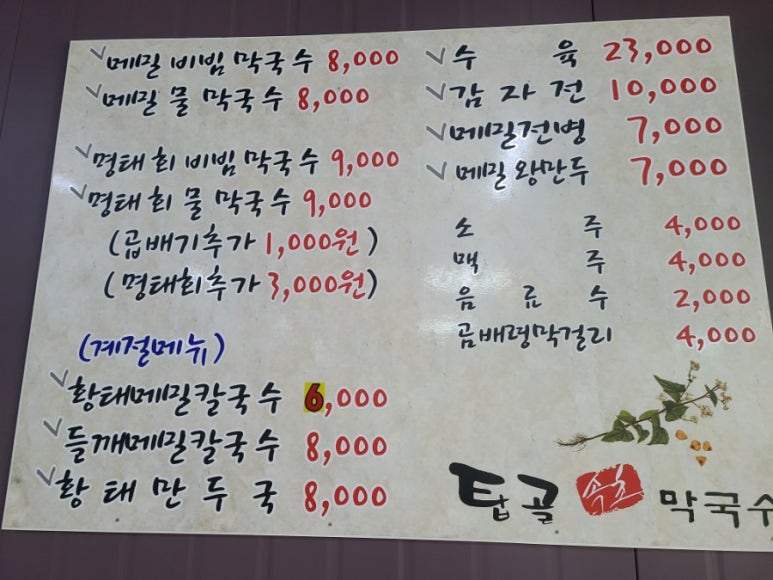 메밀 비빔 막국수 8,000
메밀 물 막국수 8,000
명태회 비빔 막국수 9,000
명태회 물 막국수 9,000
(곱배기추가 1,000원)
(명태회추가 3,000원)
(계절메뉴)
황태메밀칼국수 6,000
들깨메밀칼국수 8,000
황태만두국 8,000
수육 23,000
감자전 10,000
메밀전병 7,000
메밀왕만두 7,000
소주 4,000
맥주 4,000
음료수 2,000
곰배령막걸리 4,000
탑골 속초 막국수